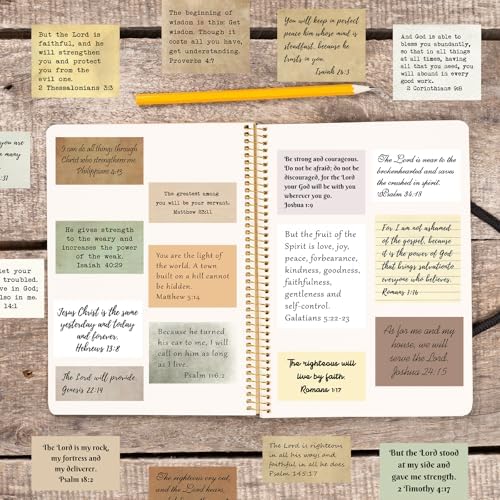 But the Lord is
faithful, and he
will strengthen
you and protect
you from the
evil one.
2 Thessalonians 3:3
The beginning of
wisdom is this: Get
wisdom. Though it
costs all you have,
get understanding.
Proverbs 4:7
You will keep in perfect
peace him whose mind is
steadfast, because he
trusts in you.
Isaiah 26:3
And God is able to
bless you abundantly,
so that in all things
at all times, having
all that you need, you
will abound in every
good work.
2 Corinthians 9:8
you are
many
:31
let your
troubled.
ve in God;
lso in me.
14:1
I can do all things through
Christ who strengthens me.
Philippians 4:13
The greatest among
you will be your servant.
Matthew 23:11
He gives strength
to the weary
and increases the
power of the weak.
Isaiah 40:29
You are the light of
the world. A town
built on a hill cannot
be hidden.
Matthew 5:14
Jesus Christ is the same
yesterday and today
and forever.
Hebrews 13:8
Because he turned
his ear to me, I will
call on him as long
as I live.
Psalm 116:2
The Lord will provide.
Genesis 22:14
Be strong and courageous.
Do not be afraid; do not be
discouraged, for the Lord
your God will be with you
wherever you go.
Joshua 1:9
The Lord is near to the
brokenhearted and saves
the crushed in spirit.
Psalm 34:18
But the fruit of the
Spirit is love, joy,
peace, forbearance,
kindness, goodness,
faithfulness,
gentleness and
self-control.
Galatians 5:22-23
For I am not ashamed
of the gospel, because
it is the power of God
that brings salvation to
everyone who believes.
Romans 1:16
The righteous will
live by faith.
Romans 1:17
As for me and my
house, we will
serve the Lord.
Joshua 24:15
The Lord is my rock,
my fortress and
my deliverer.
Psalm 18:2
The righteous cry out,
and the Lord hears
The Lord is righteous
in all his ways and
faithful in all he does
Psalm 145:17
But the Lord stood
at my side and
gave me strength.
2 Timothy 4:17